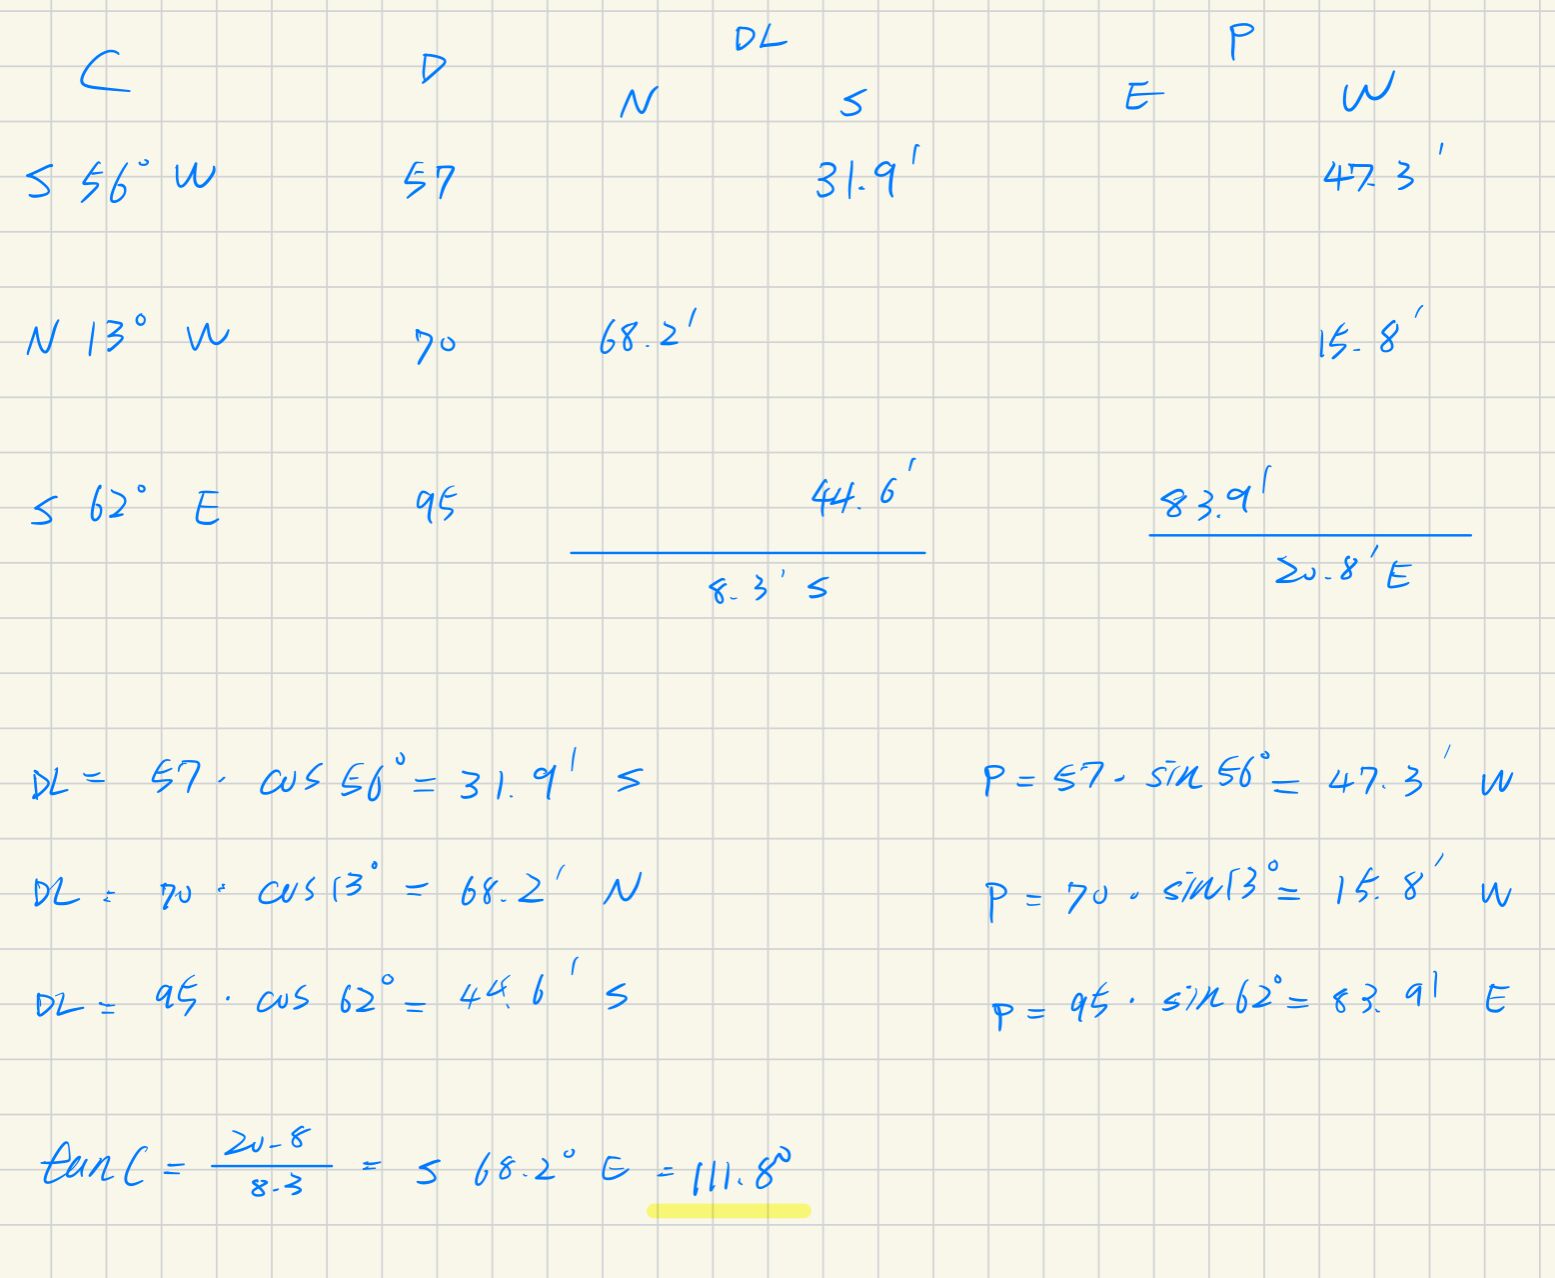 DL P
C D N S E W
S 56° W 57 31.9' 47.3'
N 13° W 70 68.2' 15.8'
S 62° E 95 44.6' 83.9'
8.3' S 20.8' E
DL = 57 · cos 56° = 31.9' S P = 57 · sin 56° = 47.3' W
DL = 70 · cos 13° = 68.2' N P = 70 · sin 13° = 15.8' W
DL = 95 · cos 62° = 44.6' S P = 95 · sin 62° = 83.9' E
tan C = 20.8 / 8.3 = S 68.2° E = 111.8°